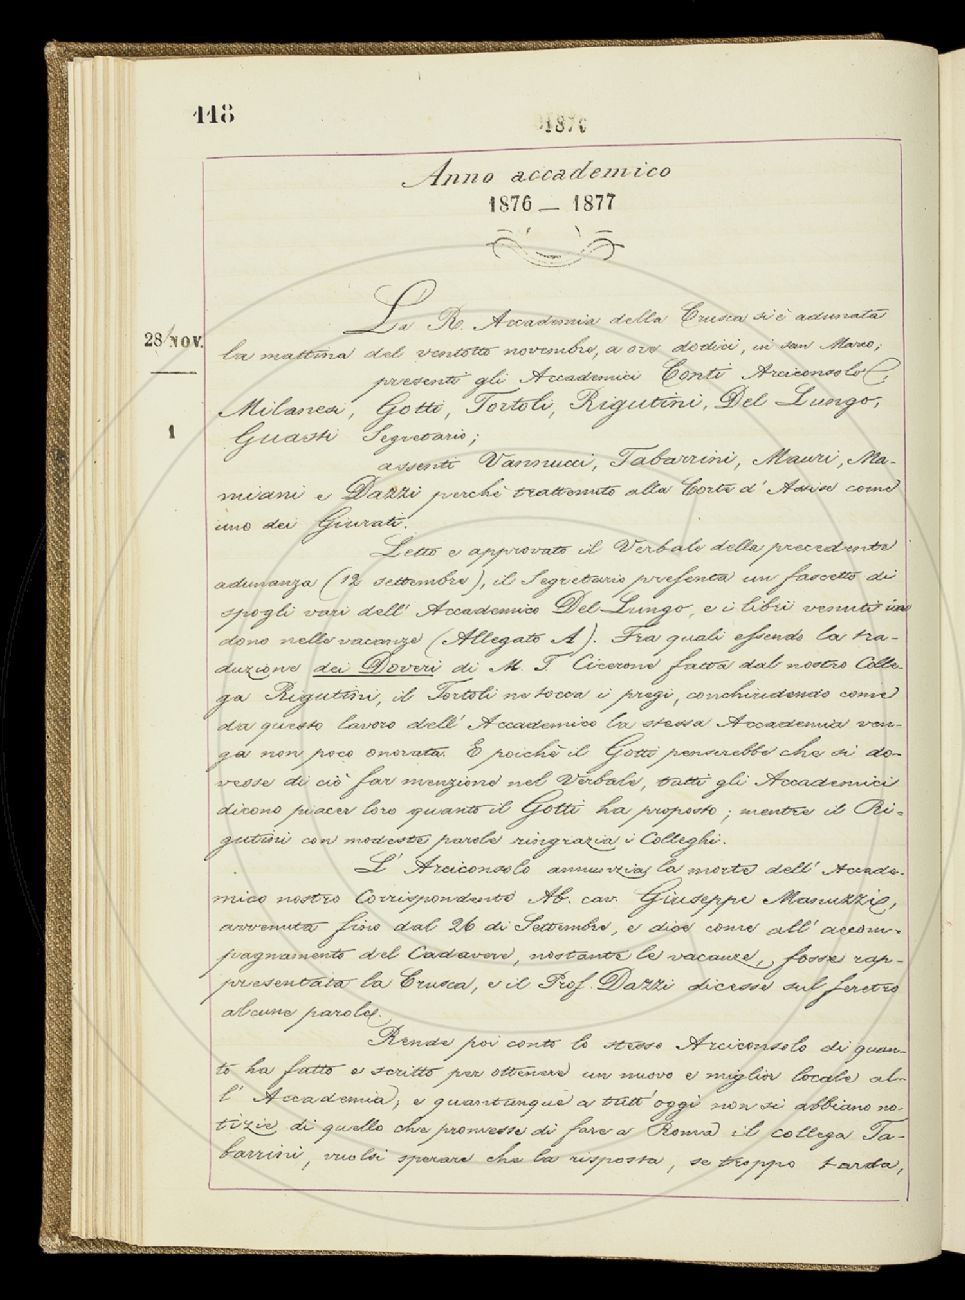 118
1876
Anno accademico
1876 — 1877
La R. Accademia della Crusca si è adunata
28 NOV.
la mattina del ventotto novembre, a ore dodici, in san Marco;
presenti gli Accademici Conti Arciconsolo,
Milanesi, Gotti, Tortoli, Rigutini, Del Lungo,
1
Guasti Segretario;
assenti Vannucci, Tabarrini, Mauri, Ma-
miani e Dazzi perchè trattenuto alla Corte d'Assise come
uno dei Giurati.
Letto e approvato il Verbale della precedente
adunanza (12 settembre), il Segretario presenta un fascetto di
spogli vari dell'Accademico Del-Lungo, e i libri venuti in
dono nelle vacanze (Allegato A). Fra quali essendo la tra-
duzione dei Doveri di M. T. Cicerone fatta dal nostro Colle-
ga Rigutini, il Tortoli ne tocca i pregi, conchiudendo come
da questo lavoro dell'Accademico la stessa Accademia ven-
ga non poco onorata. E poichè il Gotti penserebbe che si do-
vesse di ciò far menzione nel Verbale, tutti gli Accademici
dicono piacer loro quanto il Gotti ha proposto; mentre il Ri-
gutini con modeste parole ringrazia i Colleghi.
L'Arciconsolo annunzia la morte dell'Accade-
mico nostro Corrispondente Ab. cav. Giuseppe Manuzzi,
avvenuta fino dal 26 di Settembre, e dice come all'accom-
pagnamento del Cadavere, nostante le vacanze, fosse rap-
presentata la Crusca, e il Prof. Dazzi dicesse sul feretro
alcune parole.
Rende poi conto lo stesso Arciconsolo di quan-
to ha fatto e scritto per ottenere un nuovo e miglior locale al-
l'Accademia; e quantunque a tutt'oggi non si abbiano no-
tizie di quello che promesse di fare a Roma il collega Ta-
barrini, vuolsi sperare che la risposta, se troppo tarda,